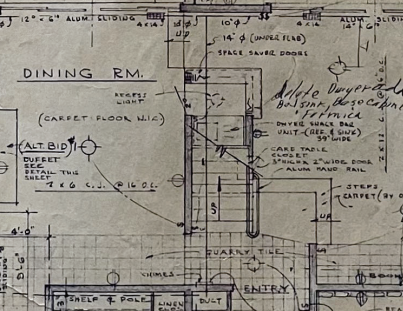 12'-6" ALUM. SLIDING
4x14
10'Φ
4x14
ALUM. SLIDING
UP
14'Φ (UNDER SLAB)
SPACE SAVER DOORS
DINING RM.
RECESS
LIGHT
delete Dwyer
Bar sink, base Cabinet
Formica
(CARPET FLOOR N.I.C.)
DWYER SNACK BAR
UNIT (REF. & SINK)
39" WIDE
(ALT. BID)
BUFFET
SEE
DETAIL THIS
SHEET
CARD TABLE
CLOSET
ALUM HAND RAIL
2 x 6 C.J. @ 16 O.C.
2 x 12
UP
STEPS
CARPET (BY O
UP
4'-0"
QUARRY TILE
SLIDING
9'-6"
CHIMES
ENTRY
BOOK
SHELF & POLE
LINEN
DUCT